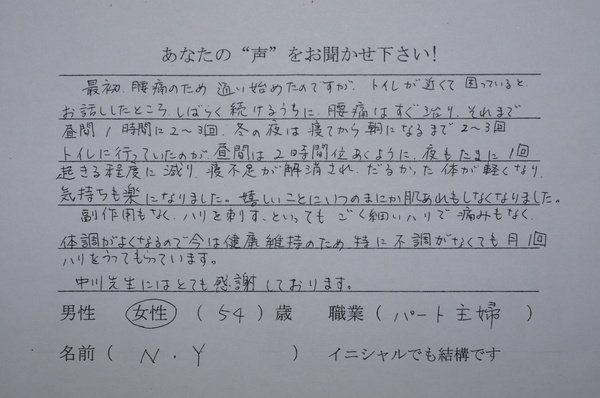 あなたの“声”をお聞かせ下さい!
最初、腰痛のため通い始めたのですが、トイレが近くて困っていると、
お話ししたところ、しばらく続けるうちに、腰痛はすぐ治り、それまで
昼間1時間に2〜3回、冬の夜は寝てから朝になるまで2〜3回
トイレに行っていたのが、昼間は2時間位あくように、夜もたまに1回
起きる程度に減り、寝不足が解消され、だるかった体が軽くなり、
気持ちも楽になりました。嬉しいことにいつのまにか肌あれもしなくなりました。
副作用もなく、ハリを刺す、といってもごく細いハリで痛みもなく、
体調がよくなるので今は健康維持のため特に不調がなくても月1回
ハリをうってもらっています。
中川先生にはとても感謝しております。
男性 女性 (54)歳 職業(パート主婦)
名前(N・Y) イニシャルでも結構です